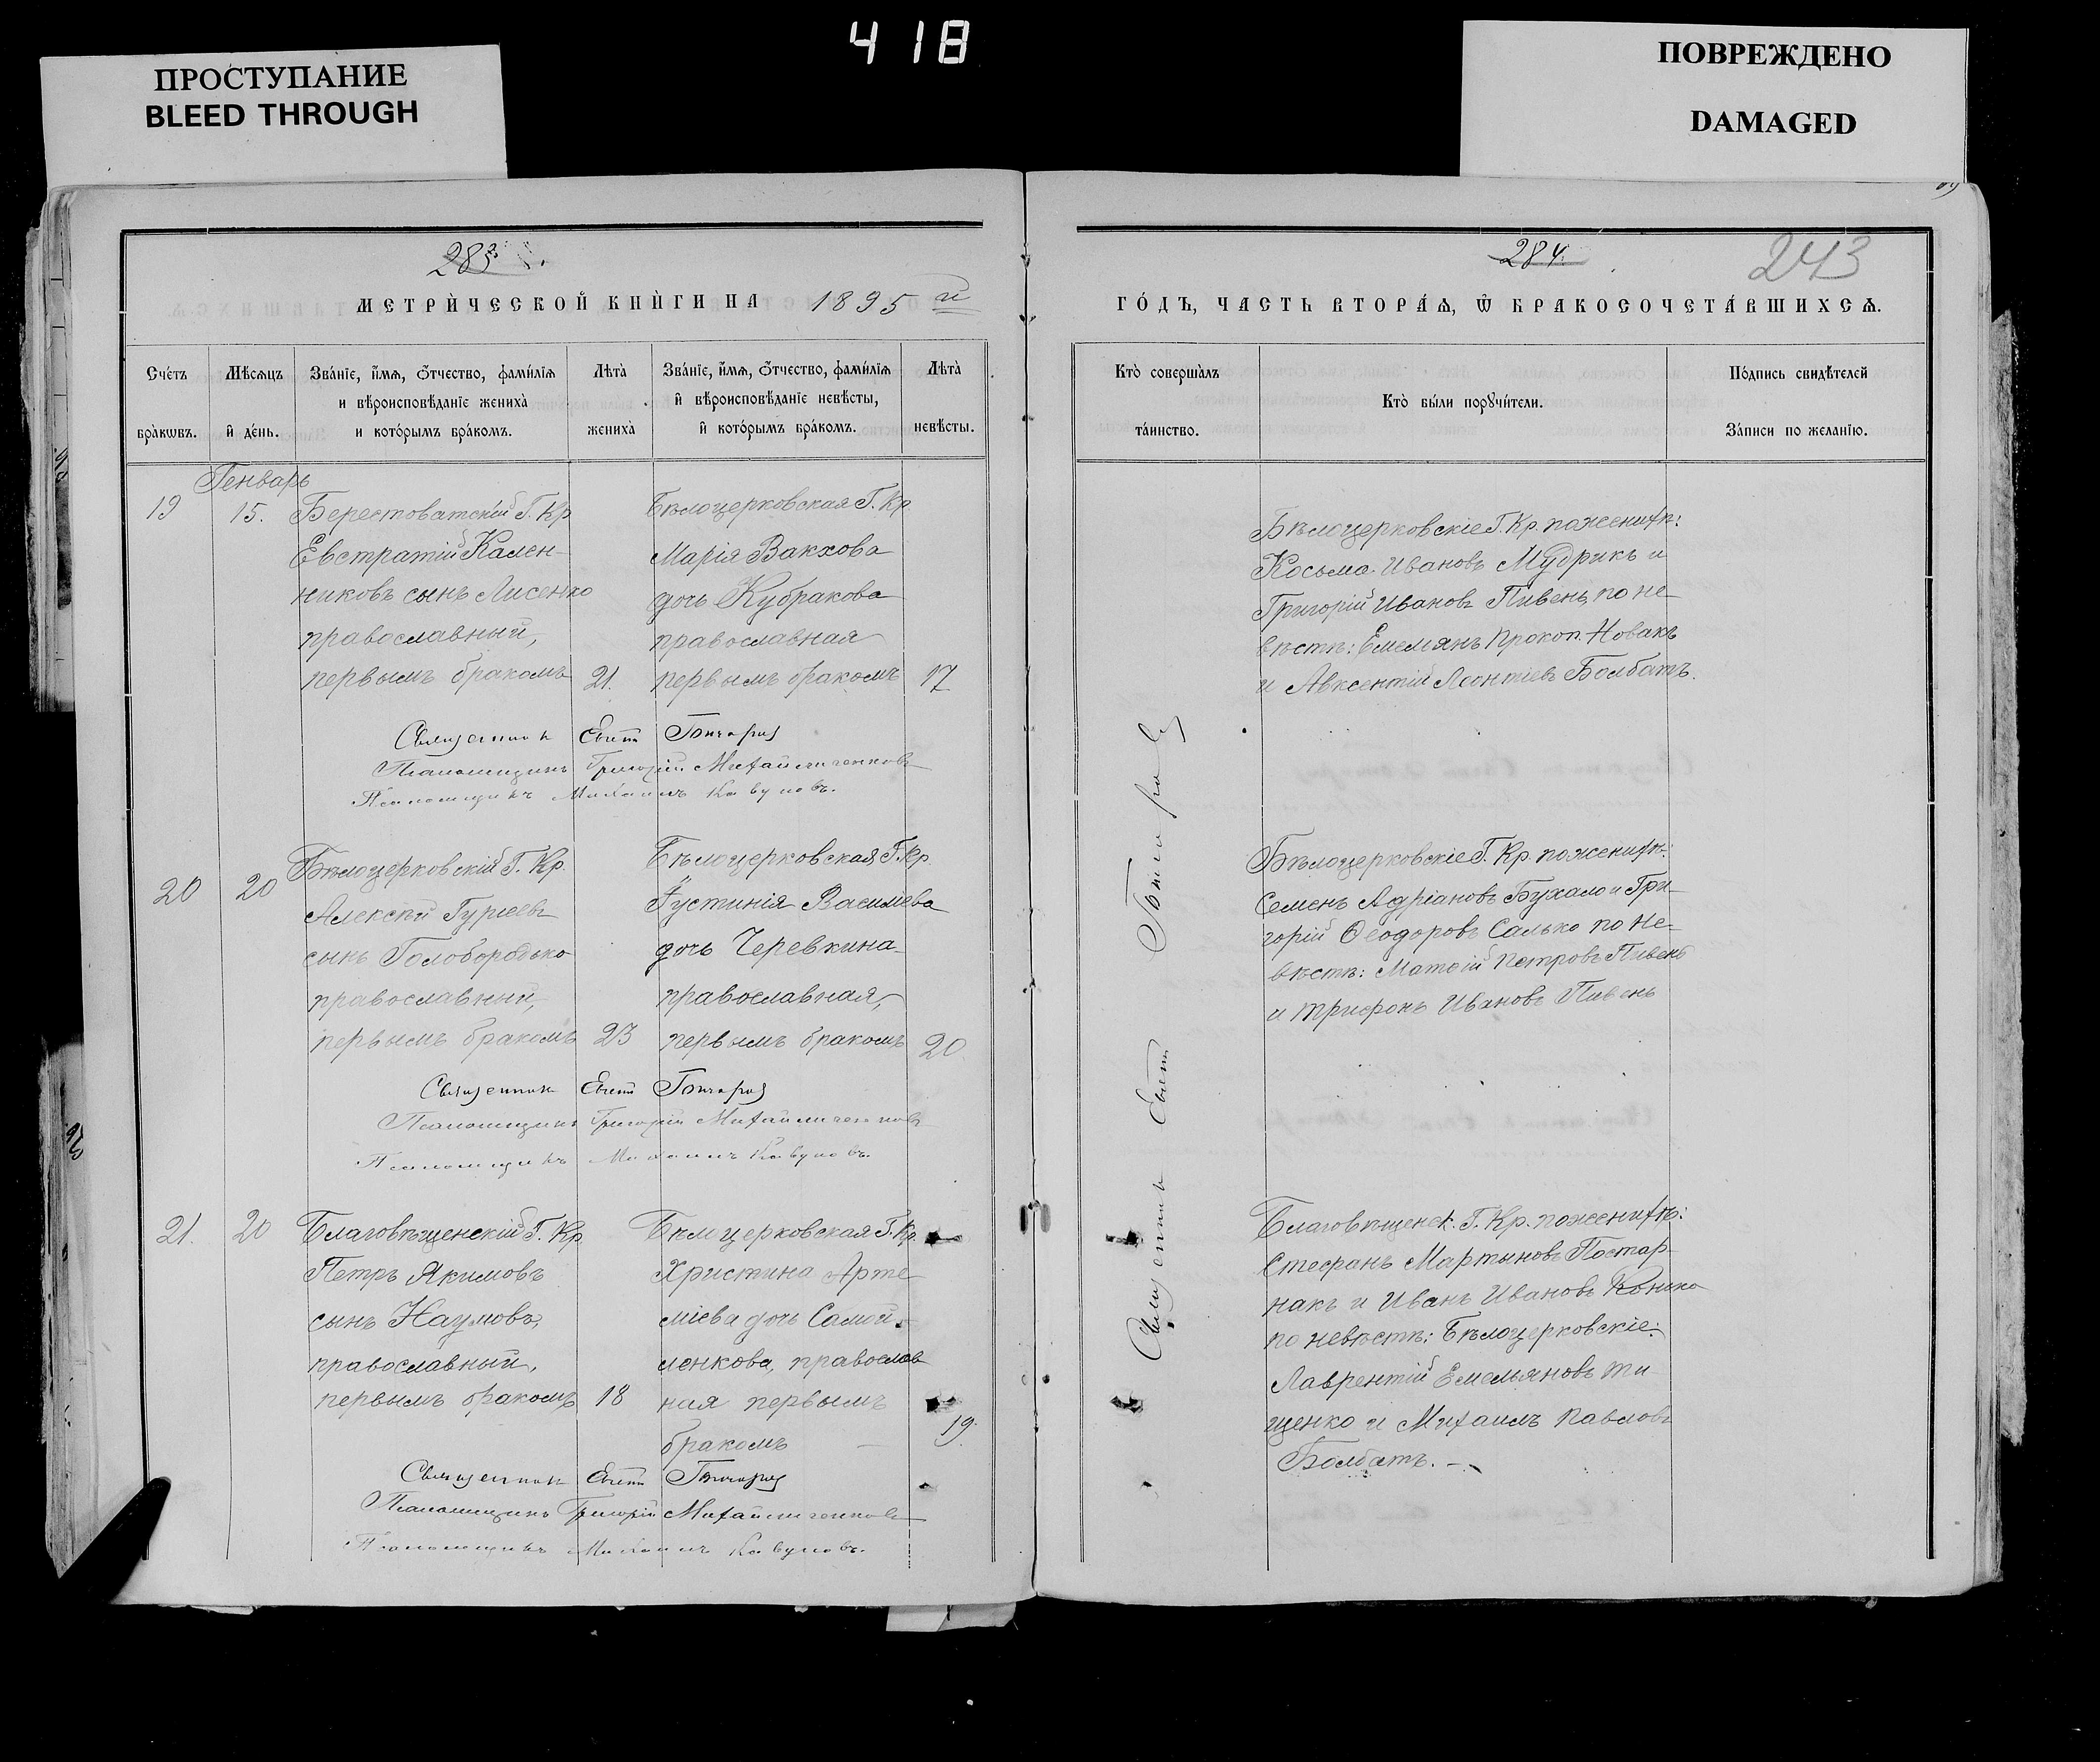 418
ПРОСТУПАНИЕ
BLEED THROUGH
ПОВРЕЖДЕНО
DAMAGED
283
МЕТРИ́ЧЕСКОЙ КНИ́ГИ НА 1895 й
Сче́тъ бра́кѡвъ.
Мѣ́сѧцъ й де́нь.
Зва́нїе, и҆́мѧ, ѻ҆́тчество, фамѝлїѧ и вѣроисповѣ́данїе жениха̀ и кото́рымъ бра́комъ.
Лѣ́та жениха̀
Зва́нїе, и҆́мѧ, ѻ҆́тчество, фамѝлїѧ й вѣроисповѣ́данїе невѣ́сты, й кото́рымъ бра́комъ.
Лѣ́та невѣ́сты.
Генварь
19
15.
Берестоватскій Г. Кр
Евстратій Кален-
никовъ сынъ Лисенко
православный,
первымъ бракомъ
21.
Бѣлоцерковская Г. Кр
Марія Вакхова
дочь Кубракова
православная
первымъ бракомъ
17
Священникъ Евгеній
Псаломщикъ Григорій Михайличенковъ
Псаломщикъ Михаилъ Кавуновъ.
20
20
Бѣлоцерковскій Г. Кр.
Алексѣй Гуріевъ
сынъ Голобородько
православный,
первымъ бракомъ
23
Бѣлоцерковская Г. Кр.
Іустинія Василіева
дочь Черевкина
православная,
первымъ бракомъ
20
Священникъ Евгеній
Псаломщикъ Григорій Михайличенковъ
Псаломщикъ Михаилъ Кавуновъ.
21.
20
Благовѣщенскій Г. Кр
Петръ Якимовъ
сынъ Наумовъ,
православный,
первымъ бракомъ
18
Бѣлцерковская Г. Кр.
Христина Арте
міева дочь Самой-
ленкова, православ
ная первымъ
бракомъ
19.
Священникъ Евгеній
Псаломщикъ Григорій Михайличенковъ
Псаломщикъ Михаилъ Кавуновъ.
284.
243
ГО́ДЪ, ЧАСТЬ ВТОРА́Ѧ, Ѡ҆ БРАКОСОЧЕТА́ВШИХСѦ.
Кто̀ соверша́лъ та́инство.
Кто̀ бы́ли порꙋчи́тели.
По́дпись свидѣ́телей За́писи по жела́нїю.
Священникъ Евгеній
Бѣлоцерковскіе Г. Кр. по женихѣ:
Косьма Ивановъ Мудрикъ и
Григорій Ивановъ Пивень, по не-
вѣстѣ: Емельянъ Прокоп. Новакъ
и Авксентій Леонтіевъ Болбатъ.
Бѣлоцерковскіе Г. Кр. по женихѣ:
Семенъ Адріановъ Бухало и Гри-
горій Ѳеодоровъ Салько по не-
вѣстѣ: Матѳій Петровъ Пивень
и Трифонъ Ивановъ Пивень
Благовѣщенск. Г. Кр. по женихѣ:
Стефанъ Мартыновъ Постар-
накъ и Иванъ Ивановъ Конько
по невѣстѣ: Бѣлоцерковскіе:
Лаврентій Емельяновъ Ти-
щенко и Михаилъ Павловъ
Болбатъ.